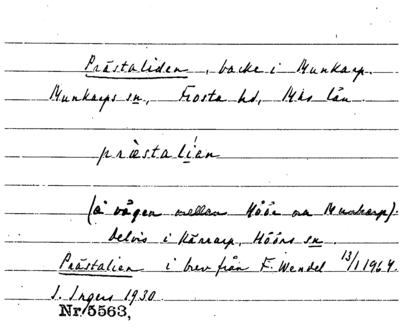 Prästaliden, backe i Munkarp.
Munkarps sn, Frosta hd, Mhs län.
præstalían
(å vägen mellan Höör och Munkarp).
Delvis i Kärrarp, Höörs sn.
Prästalien i brev från F. Wendel 13/1 1964.
I. Ingers 1930.
Nr 5563,